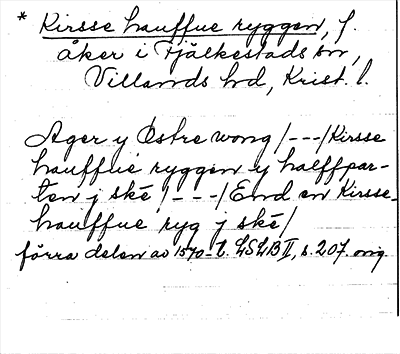 * Kirsse hauffue ryggen, f.
åker i Fjälkestads sn,
Villands hd, Krist. l.
Ager y Østre wong /---/ Kirsse
hauffue ryggen y halffpar-
ten j ské /---/ End en Kirsse-
hauffue ryg j ské /
förra delen av 1570-t. LSLB II, s. 207. orig.